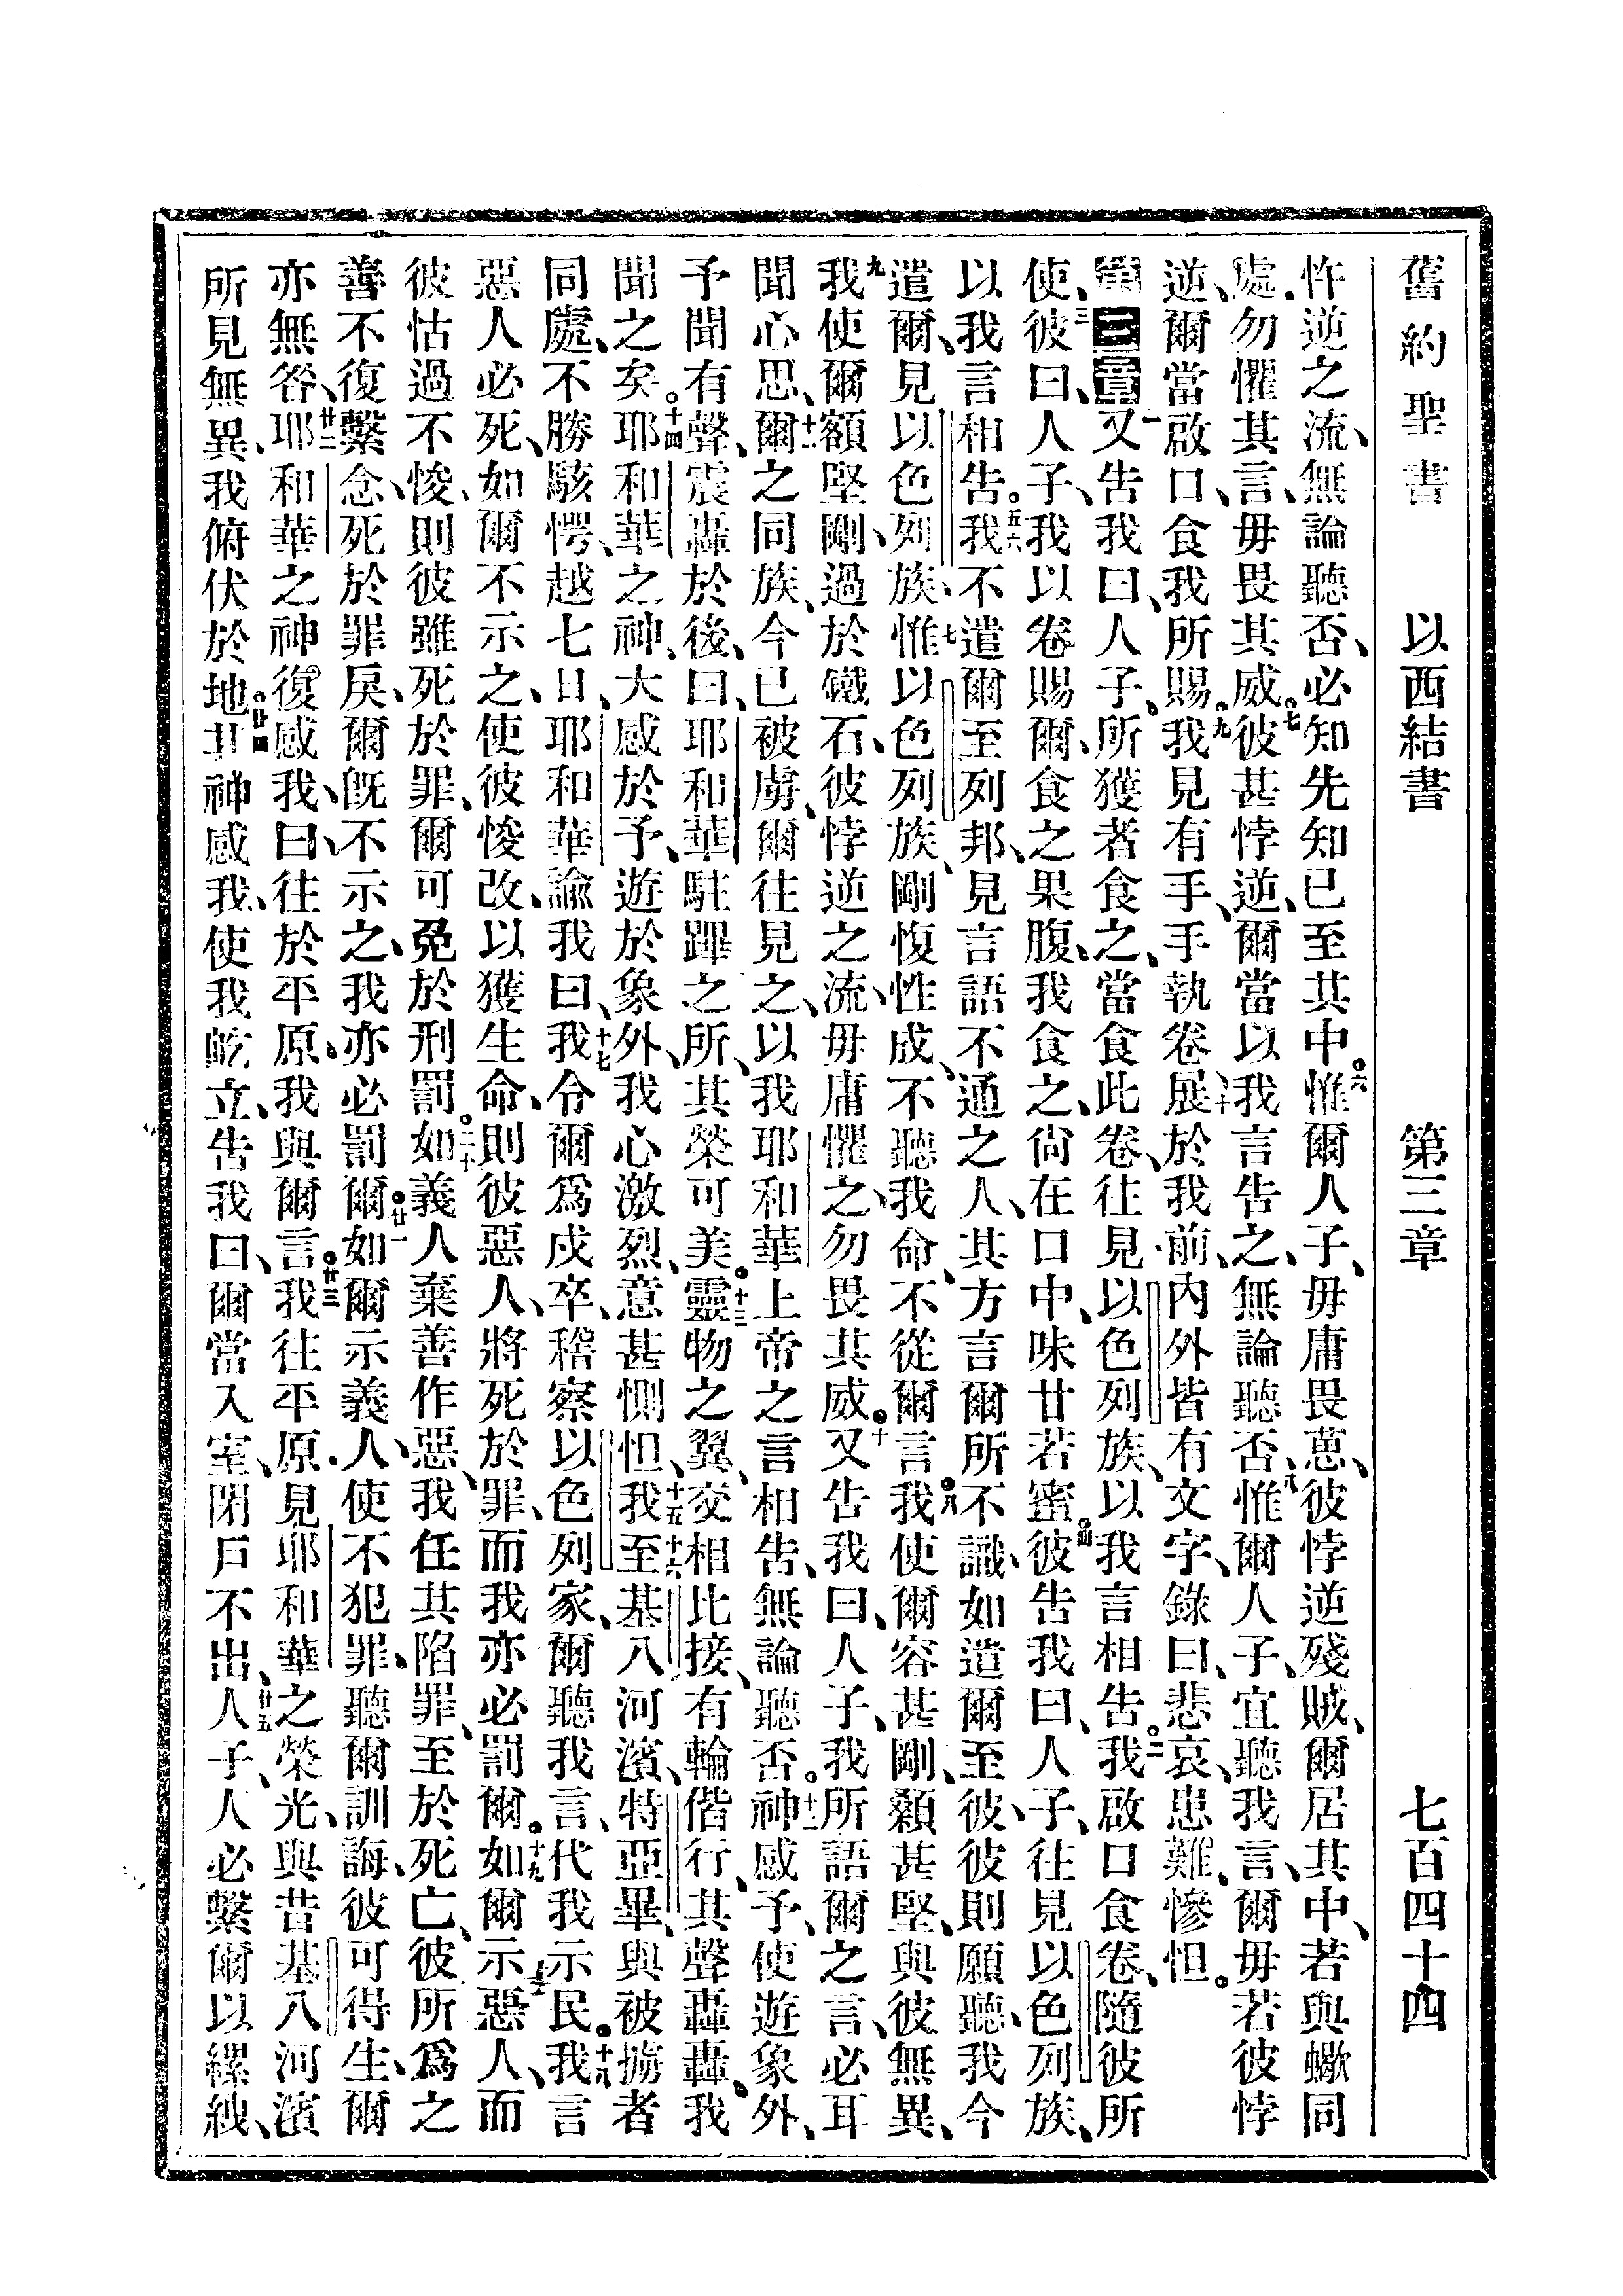 舊約聖書 以西結書 第三章 七百四十四
忤逆之流、無論聽否、必知先知已至其中。六惟爾人子、毋庸畏葸、彼悖逆殘賊、爾居其中、若與蠍同
處、勿懼其言、毋畏其威。七彼甚悖逆、爾當以我言告之、無論聽否、八惟爾人子、宜聽我言、爾毋若彼悖
逆、爾當啟口、食我所賜。九我見有手、手執卷、十展於我前、內外皆有文字、錄曰、悲哀、患難、慘怛。
第三章一又告我曰、人子、所獲者食之、當食此卷、往見以色列族、以我言相告。二我啟口食卷、隨彼所
使、三彼曰、人子、我以卷賜爾、食之果腹、我食之、尙在口中、味甘若蜜。四彼告我曰、人子、往見以色列族、
以我言相告。五六我不遣爾至列邦、見言語不通之人、其方言爾所不識、如遣爾至彼、彼則願聽、我今
遣爾、見以色列族、七惟以色列族、剛愎性成、不聽我命、不從爾言。八我使爾容甚剛、顙甚堅、與彼無異、
九我使爾額堅剛、過於鐵石、彼悖逆之流、毋庸懼之、勿畏其威。十又告我曰、人子、我所語爾之言、必耳
聞心思、十一爾之同族、今已被虜、爾往見之、以我耶和華上帝之言相告、無論聽否。十二神感予、使遊象外、
予聞有聲、震轟於後、曰、耶和華駐蹕之所、其榮可美。十三靈物之翼、交相比接、有輪偕行、其聲轟轟、我
聞之矣。十四耶和華之神、大感於予、遊於象外、我心激烈、意甚惻怛、十五十六我至基八河濱、特亞畢、與被擄者
同處、不勝駭愕、越七日、耶和華諭我曰、十七我令爾爲戍卒、稽察以色列家、爾聽我言、代我示民。十八我言
惡人必死、如爾不示之、使彼悛改、以獲生命、則彼惡人、將死於罪、而我亦必罰爾。十九如爾示惡人、而
彼怙過不悛、則彼雖死於罪、爾可免於刑罰。二十如義人棄善作惡、我任其陷罪、至於死亡、彼所爲之
善、不復繫念、死於罪戾、爾旣不示之、我亦必罰爾。廿一如爾示義人、使不犯罪、聽爾訓誨、彼可得生、爾
亦無咎、廿二耶和華之神。復感我、曰、往於平原、我與爾言。廿三我往平原、見耶和華之榮光、與昔基八河濱
所見無異、我俯伏於地。廿四其神感我、使我屹立、告我曰、爾當入室、閉戶不出、廿五人子、人必繫爾以縲絏、